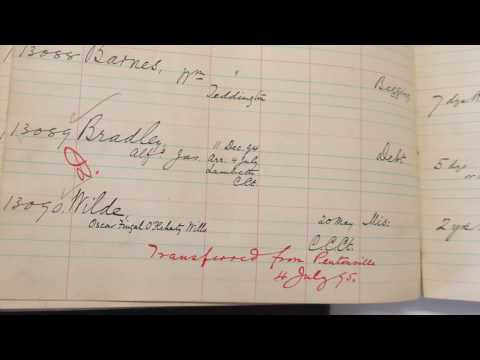 13088 Barnes, Wm " Begging 7 dys
Teddington
13089 Bradley, 11 Dec. 94 Debt 5 dys
Alfd Jas. arr. 4 July
Lambeth
C.Ct.
13090 Wilde, 20 May Mis: 2 yrs
Oscar Fingal O'Flaherty Wills C.C.Ct.
Transferred from Pentonville
4 July 95.